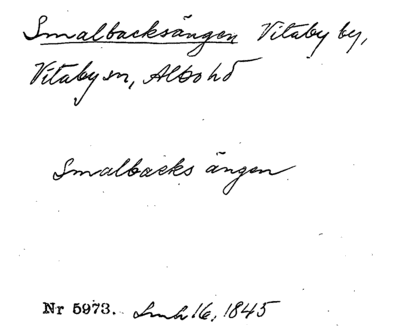 Smalbacksängen Vitaby by,
Vitaby sn, Albo hd
Smalbacks ängen
Nr 5973. Lmh 16, 1845